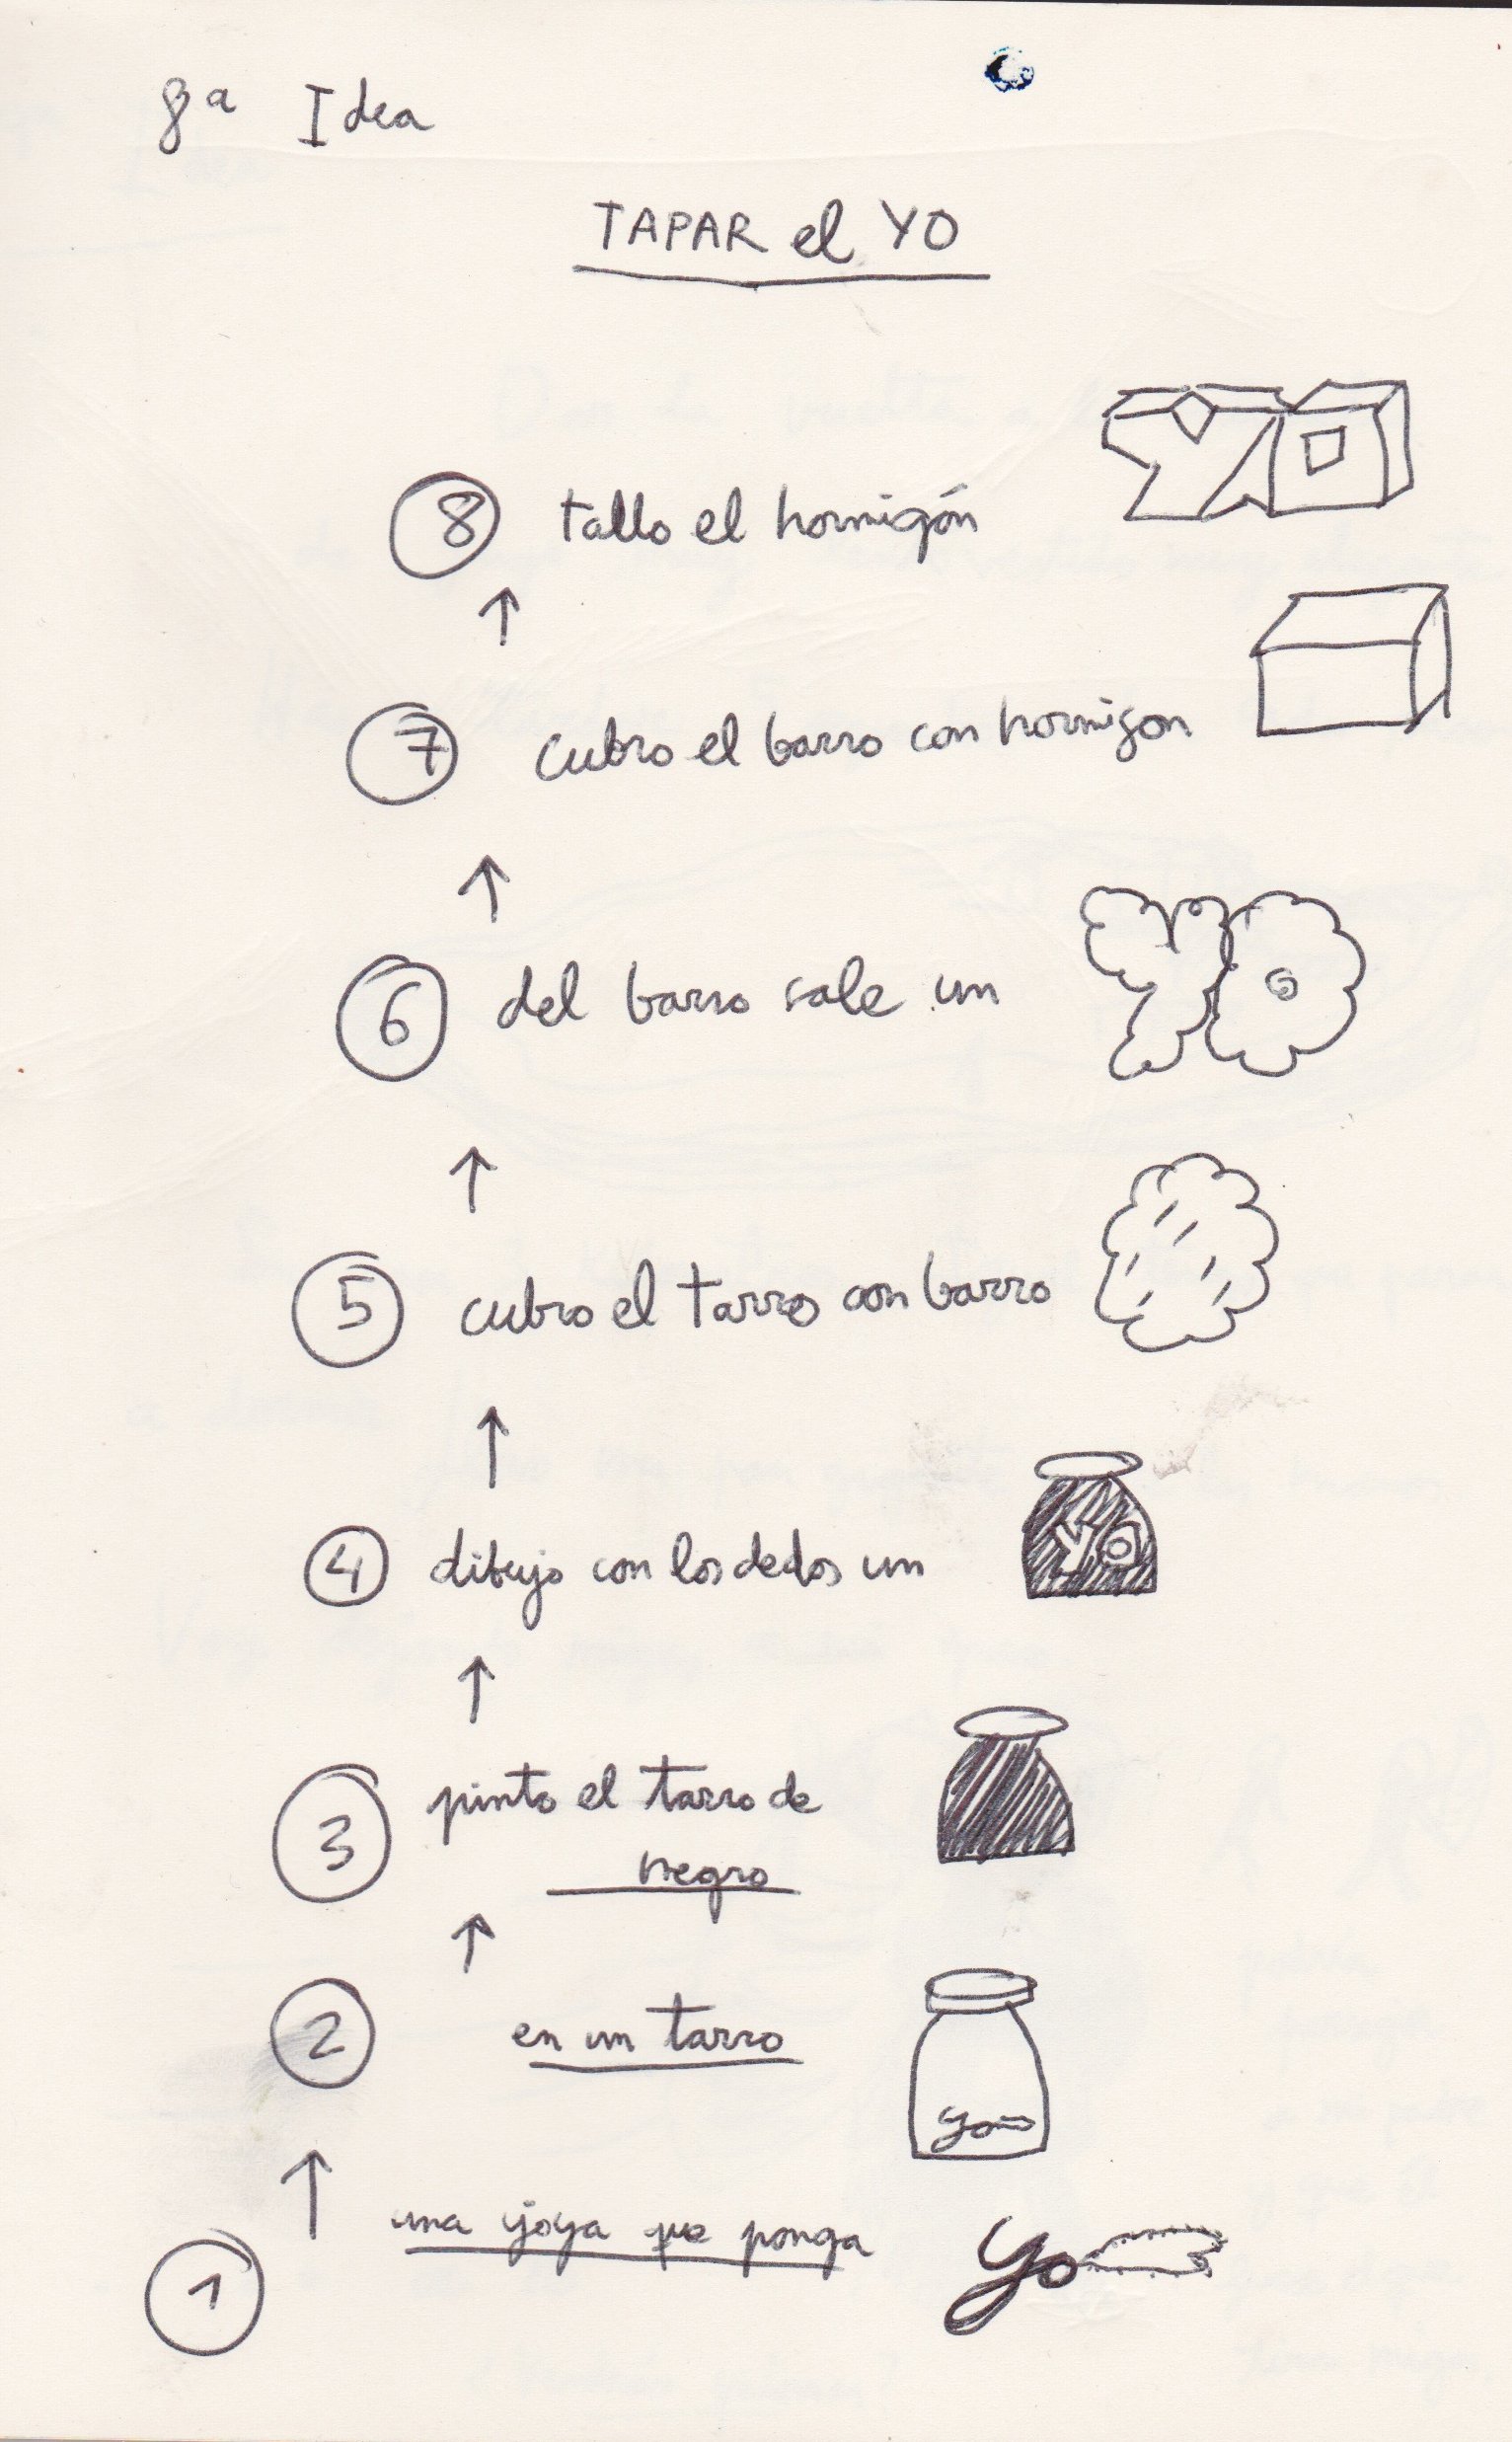 8ª Idea
TAPAR el YO
8 tallo el hormigón YO
7 cubro el barro con hormigon
6 del barro sale un YO
5 cubro el tarro con barro
4 dibujo con los dedos un YO
3 pinto el tarro de
negro
2 en un tarro yo
1 una joya que ponga yo